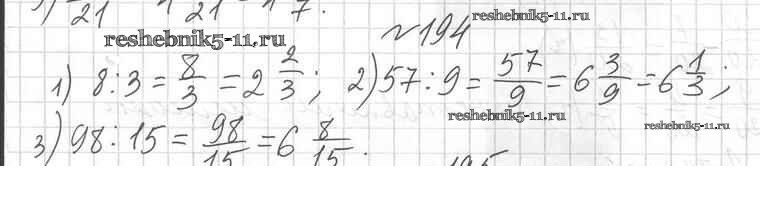 21 21 7.
reshebnik5-11.ru
№194
reshebnik5-11.ru
1) 8:3 = 8/3 = 2 2/3; 2) 57:9 = 57/9 = 6 3/9 = 6 1/3;
reshebnik5-11.ru
reshebnik5-11.ru
3) 98:15 = 98/15 = 6 8/15.